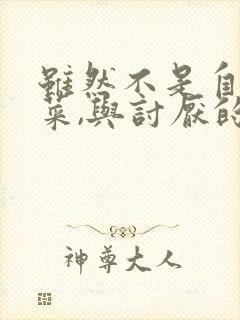 雖然不是自
菜,與討厭的
神尊大人